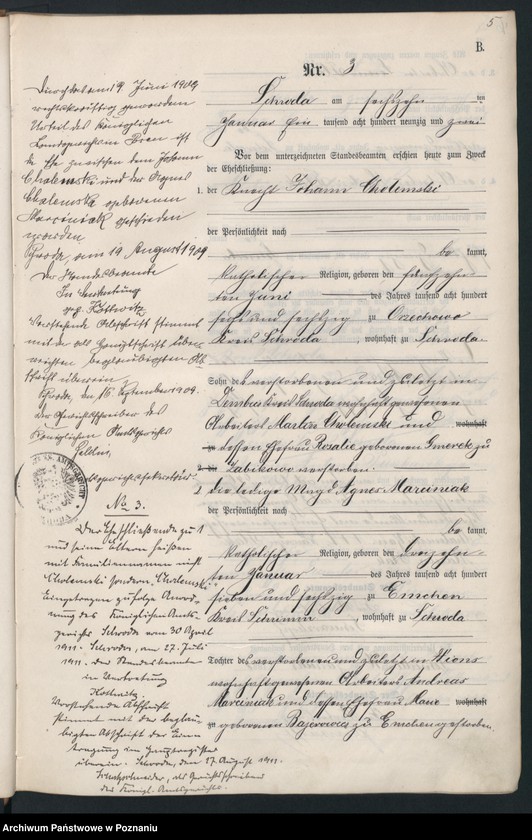 5
B.
Nr. 3
Schroda am sechzehn ten
Januar ein tausend acht hundert neunzig und zwei
Vor dem unterzeichneten Standesbeamten erschien heute zum Zweck
der Eheschließung:
1. der Knecht Johann Cholemski
der Persönlichkeit nach
be kannt,
katholischer Religion, geboren den fünfzehn
ten Juni des Jahres tausend acht hundert
sechs und sechzig zu Orzechowo
Kreis Schroda, wohnhaft zu Schroda
Sohn des verstorbenen und zuletzt in
Dembicz Kreis Schroda wohnhaft gewesenen
Arbeiters Martin Cholemski und wohnhaft
zu dessen Ehefrau Rosalie geborenen Gmerek zu
Zabikowo verstorben.
2. die ledige Magd Agnes Marciniak
der Persönlichkeit nach
be kannt,
katholischer Religion, geboren den dreizehn
ten Januar des Jahres tausend acht hundert
sieben und sechzig zu Emchen
Kreis Schrimm, wohnhaft zu Schroda
Tochter des verstorbenen und zuletzt in Xions
wohnhaft gewesenen Arbeiters Andreas
Marciniak und dessen Ehefrau wohnhaft
zu geborenen zu Emchen gestorben.
Durch das am 9. Juni 1909
rechtskräftig gewordene
Urteil des Königlichen
Landgerichts in Posen ist
die Ehe zwischen dem Johann
Cholemski und der Agnes
Cholemska geborenen
Marciniak geschieden
worden
Schroda, am 19 August 1909
Der Standesbeamte
In Vertretung
gez. Kottwitz
Vorstehende Abschrift stimmt
mit der
beglaubigten Ab
schrift überein.
Schroda, den 16. September 1909.
Der Gerichtsschreiber des
Königlichen Amtsgerichts
No 3.
Der Eheschließende zu 1
und seine Eltern heißen
mit Familiennamen nicht
Cholemski sondern Chelemski
Eingetragen zufolge Anord
nung des Königlichen Amts
gerichts Schroda vom 30 April
1911. Schroda, am 27. Juli
1911. Der Standesbeamte
in Vertretung
Kottwitz.
Vorstehende Abschrift
stimmt mit der beglau
bigten Abschrift der Ein
tragung im Hauptregister
überein. Schroda, den 17. August 1911.
als Gerichtsschreiber
des Königl. Amtsgerichts.
Archiwum Państwowe w Poznaniu